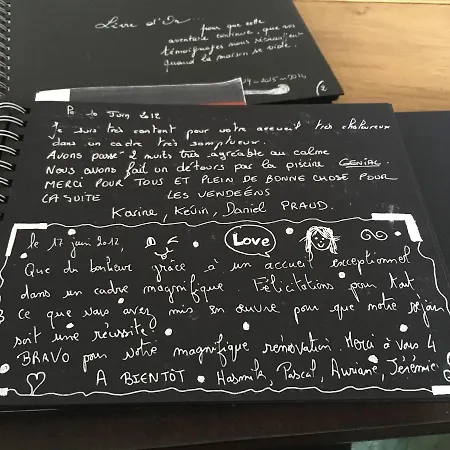 Livre d'Or...
pour que cette
aventure continue, que vos
témoignages nous réconfortent
quand la maison se vide.
2014-2015-2016
2
Juin 2012
Je suis très content pour votre accueil très chaleureux
dans un cadre très somptueux.
Avons passé 2 nuits très agréable au calme
Nous avons fait un détours par la piscine GENIAL.
MERCI POUR TOUS ET PLEIN DE BONNE CHOSE POUR
LA SUITE LES VENDEÉNS
Karine, Kévin, Daniel PRAUD.
le 17 juin 2012, Love
Que du bonheur grâce à un accueil exceptionnel
dans un cadre magnifique Félicitations pour tout
ce que vous avez mis en œuvre pour que notre séjour
soit une réussite
BRAVO pour votre magnifique rénovation. Merci à vous 4
A BIENTOT Hasmik, Pascal, Auriane, Jérémie